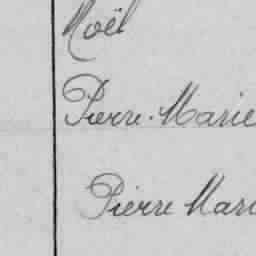 Noël
Pierre-Marie
Pierre Mari